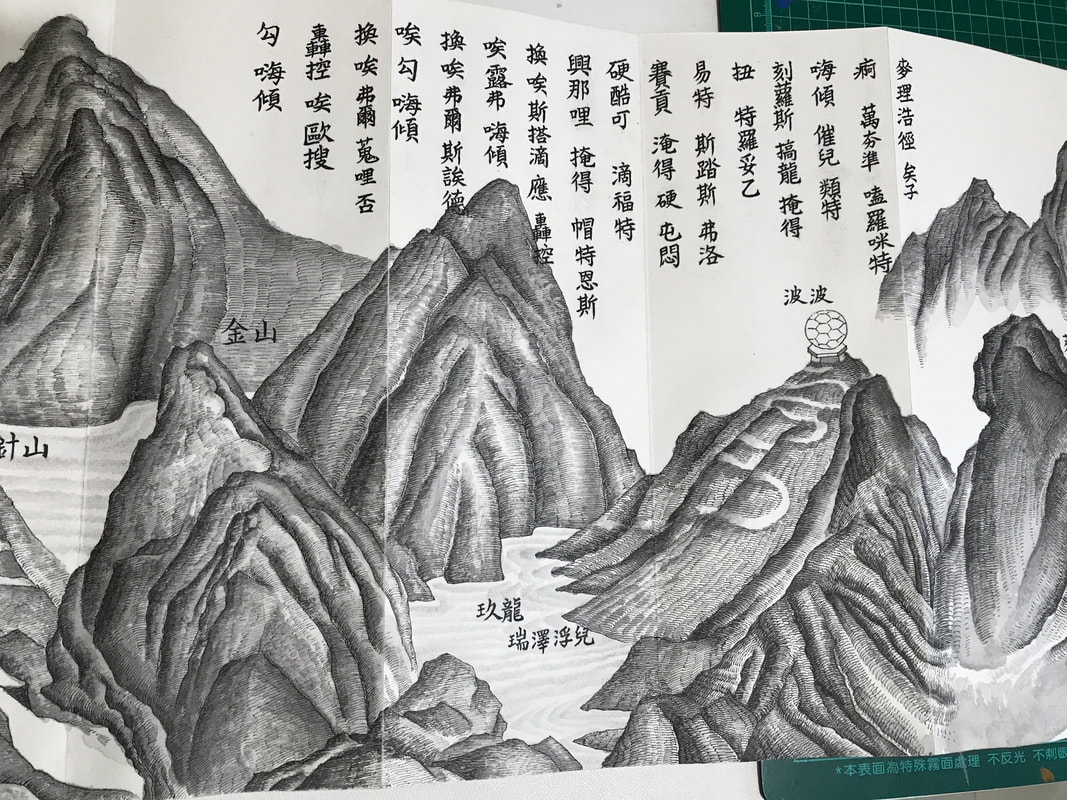 麥理浩徑 矣子
痾 萬夯準 嗑羅咪特
嗨傾 催兒 類特
刻蘿斯 搞龍 掩得
扭 特羅妥乙
易特 斯踏斯 弗洛
賽貢 淹得 硬 屯悶
硬酷可 滴福特
興那哩 掩得 帽特恩斯
換唉斯搭滴應 轟控
唉露弗 嗨傾
換唉弗爾 斯誒德
唉勾 嗨傾
換唉弗爾 蒐哩否
轟控 唉 歐搜
勾 嗨傾
波波
金山
針山
玖龍
瑞澤浮兒
*本表面為特殊霧面處理 不反光 不刺